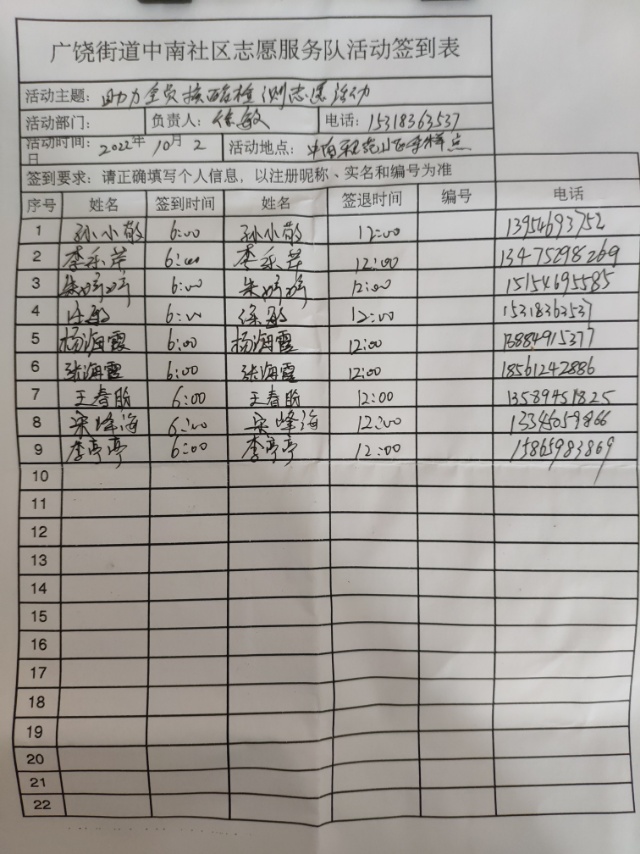 广饶街道中南社区志愿服务队活动签到表
活动主题：助力全员核酸检测志愿活动
活动部门： 负责人：徐敏 电话：15318363537
活动时间：2022年10月2日 活动地点：中南 小区 采样点
签到要求：请正确填写个人信息，以注册昵称、实名和编号为准
序号 姓名 签到时间 姓名 签退时间 编号 电话
1 孙小敬 6:00 孙小敬 12:00 13954693752
2 李乐芹 6:00 李乐芹 12:00 13475298269
3 朱婷婷 6:00 朱婷婷 12:00 15154695585
4 徐敏 6:00 徐敏 12:00 15318363537
5 杨海霞 6:00 杨海霞 12:00 13884915377
6 张海霞 6:00 张海霞 12:00 18561242886
7 王春 6:00 王春 12:00 13589451825
8 宋峰海 6:00 宋峰海 12:00 13345059866
9 李亭亭 6:00 李亭亭 12:00 15865983869
10
11
12
13
14
15
16
17
18
19
20
21
22